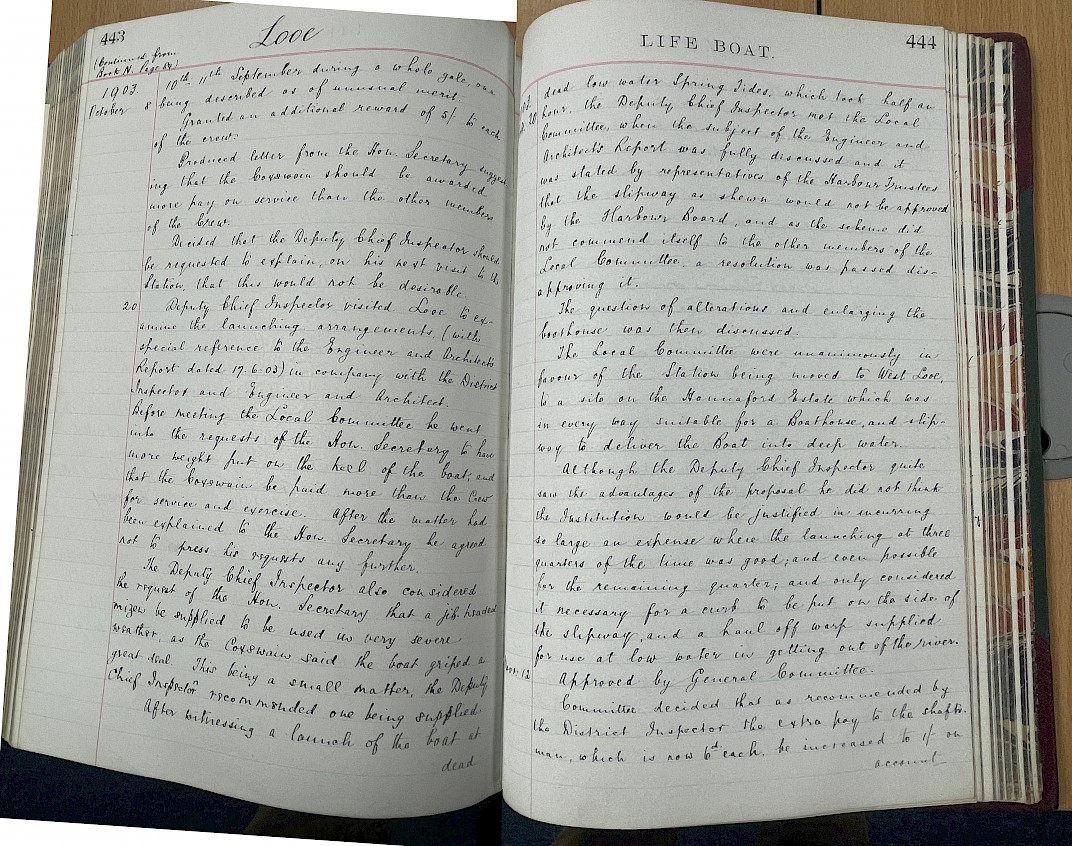 443
Looe
(Continued from
Book N. Page 64)
1903.
10th 11th September during a whole gale, one
October 8 being described as of unusual merit.
Granted an additional reward of 5/ to each
of the crew.
Produced letter from the Hon. Secretary suggest-
ing that the Coxswain should be awarded
more pay on service than the other members
of the Crew.
Decided that the Deputy Chief Inspector should
be requested to explain, on his next visit to the
Station, that this would not be desirable.
20 Deputy Chief Inspector visited Looe to ex-
amine the launching arrangements, (with
special reference to the Engineer and Architect's
Report dated 17.6.03) in company with the District
Inspector and Engineer and Architect.
Before meeting the Local Committee he went
into the requests of the Hon. Secretary to have
more weight put on the keel of the boat, and
that the Coxswain be paid more than the Crew
for service and exercise. After the matter had
been explained to the Hon. Secretary he agreed
not to press his requests any further.
The Deputy Chief Inspector also considered
the request of the Hon. Secretary that a jib headed
mizen be supplied to be used in very severe
weather, as the Coxswain said the boat griped a
great deal. This being a small matter, the Deputy
Chief Inspector recommended one being supplied.
After witnessing a launch of the boat at
dead
LIFE BOAT.
444
dead low water Spring Tides, which took half an
hour, the Deputy Chief Inspector met the Local
20 Committee, when the subject of the Engineer and
Architect's Report was fully discussed and it
was stated by representatives of the Harbour Trustees
that the slipway as shewn would not be approved
by the Harbour Board, and as the scheme did
not commend itself to the other members of the
Local Committee, a resolution was passed dis-
approving it.
The question of alterations and enlarging the
boothouse was then discussed.
The Local Committee were unanimously in
favour of the Station being moved to West Looe,
to a site on the Hannafore Estate which was
in every way suitable for a Boathouse, and slip-
way to deliver the Boat into deep water.
Although the Deputy Chief Inspector quite
saw the advantages of the proposal he did not think
the Institution would be justified in incurring
so large an expense where the launching at three
quarters of the time was good; and even possible
for the remaining quarter; and only considered
it necessary for a curb to be put on the side of
the slipway, and a haul off warp supplied
for use at low water in getting out of the river.
Approved by General Committee.
12 Committee decided that as recommended by
the District Inspector the extra pay to the shafts-
man, which is now 6d each, be increased to 1/ on
account